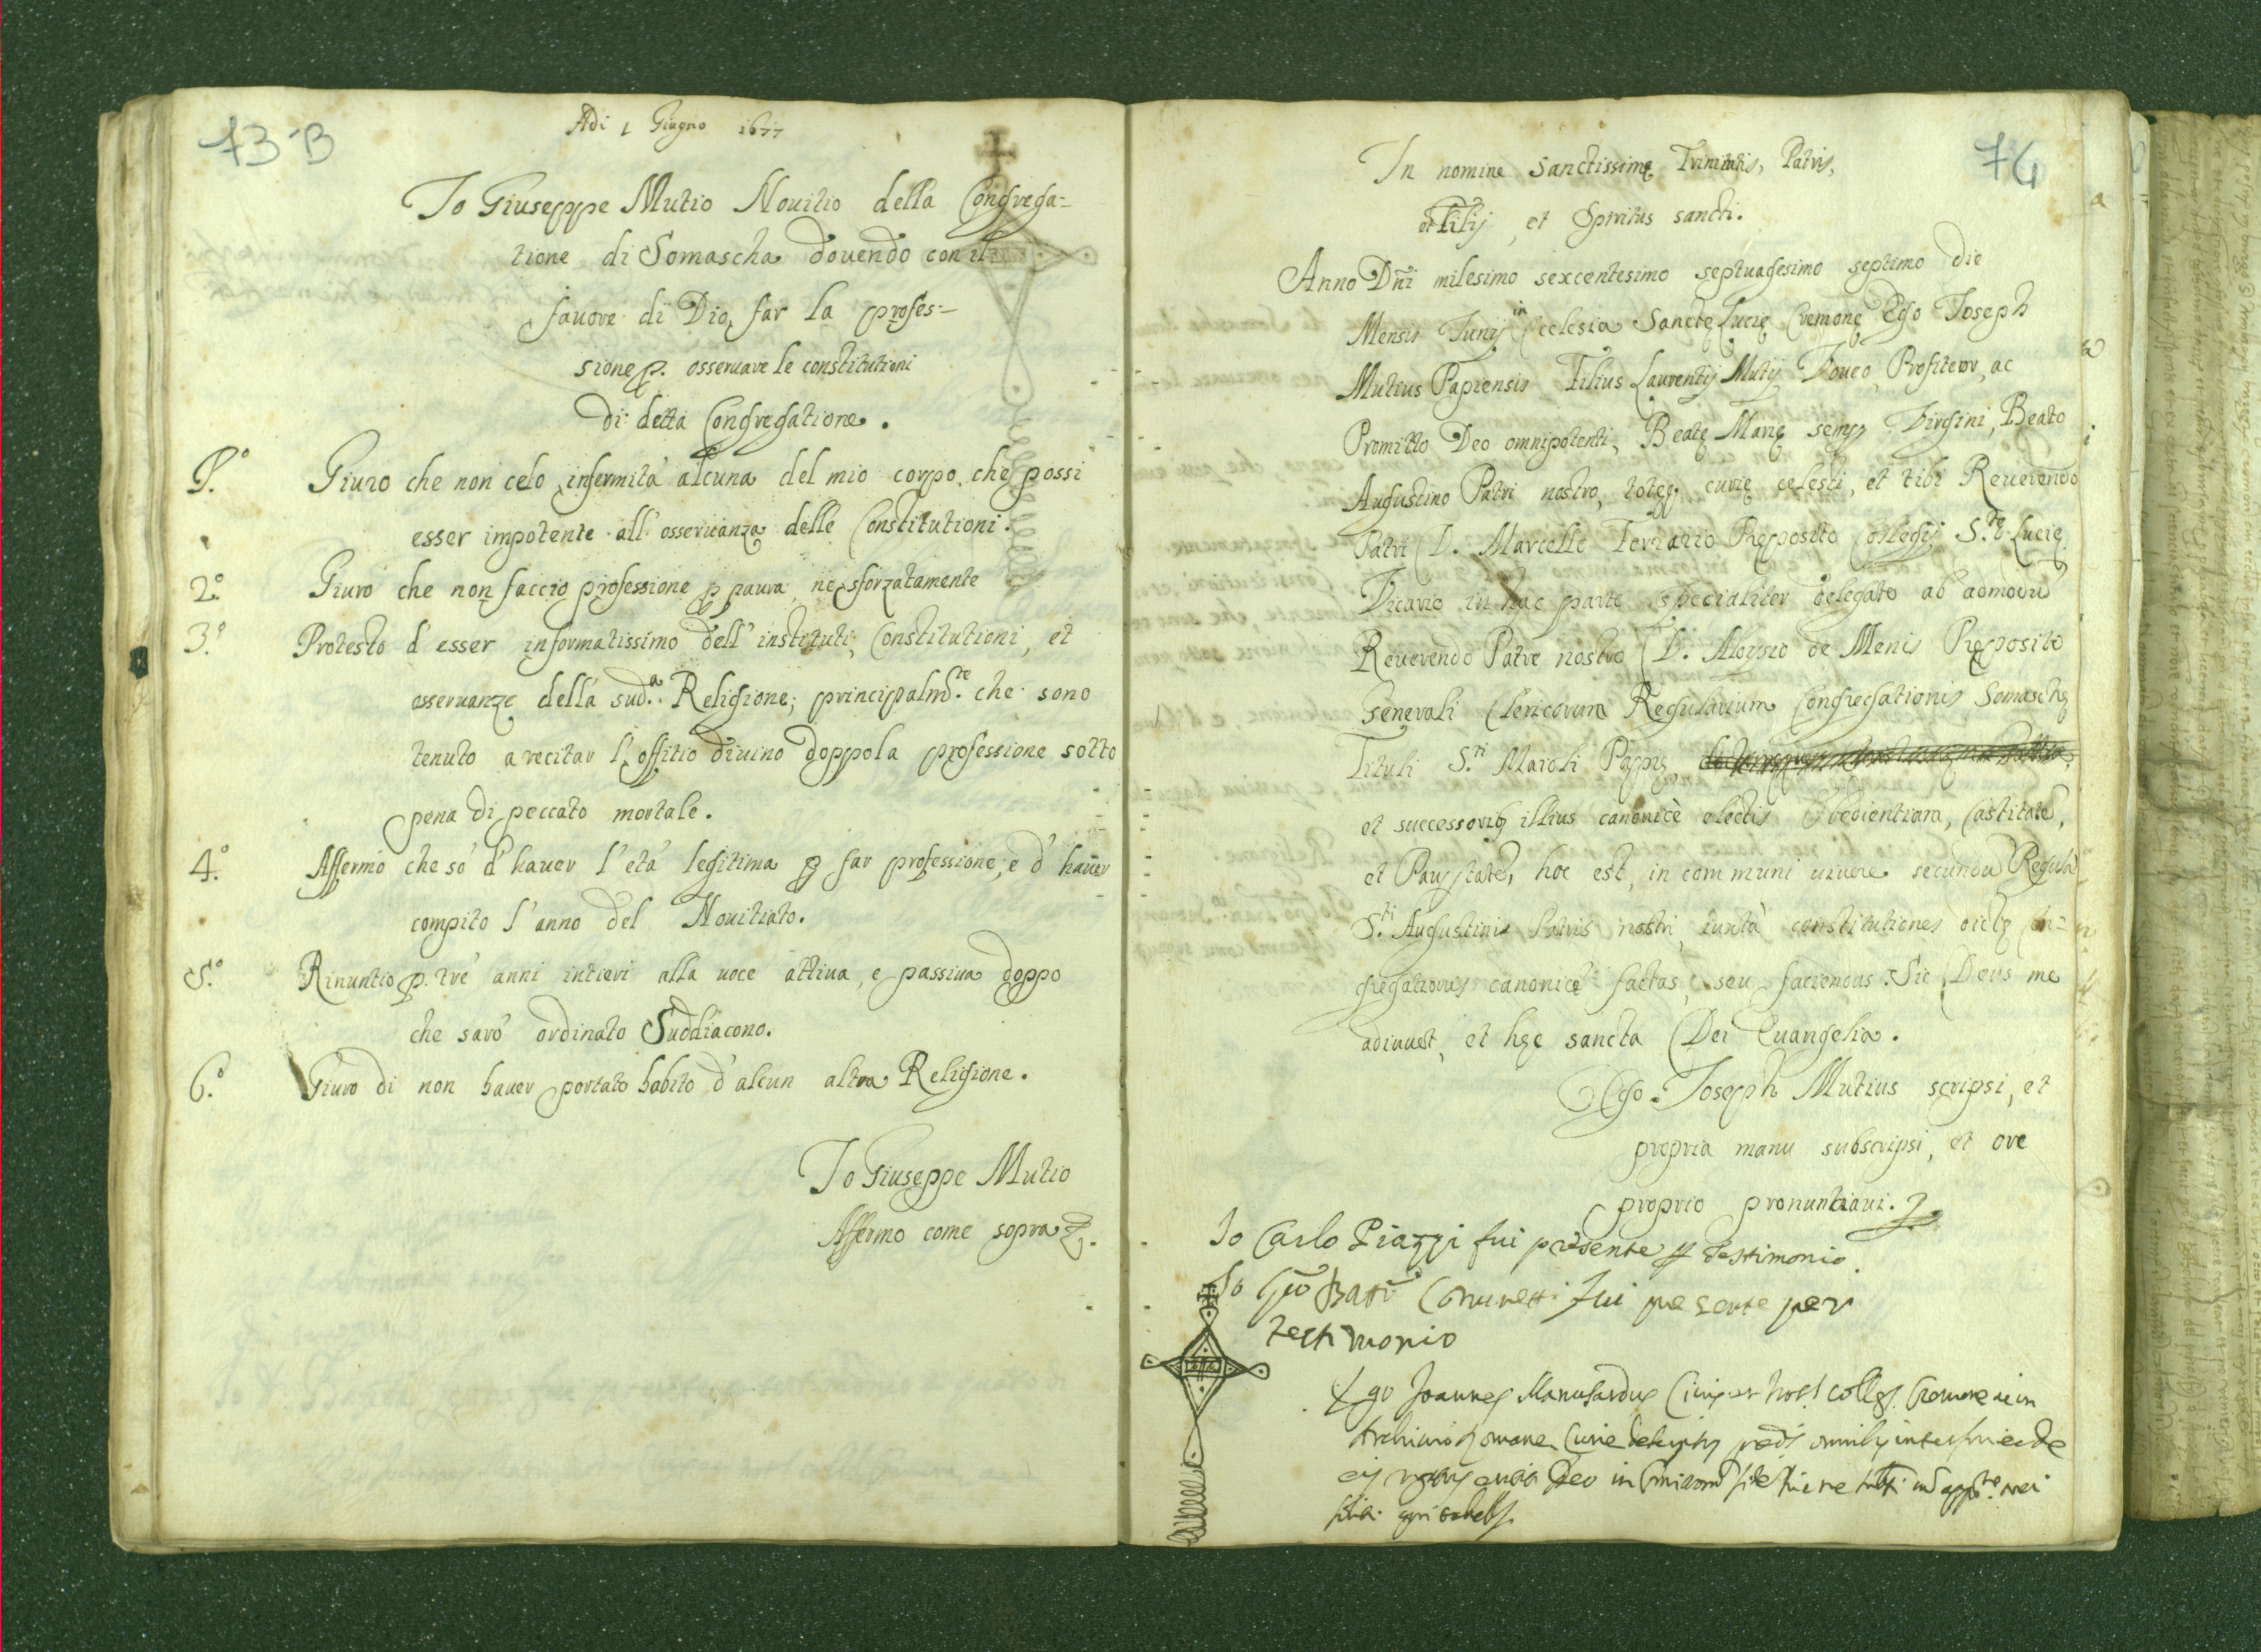 73 B
Adi 1 Giugno 1677
Io Giuseppe Mutio Nouitio della Congrega=
tione di Somascha douendo con il
fauore di Dio far la profes=
sione p. osseruare le constitutioni
di detta Congregatione.
P.º Giuro che non celo infermità alcuna del mio corpo, che possi
esser impotente all' osseruanza delle Constitutioni.
2.º Giuro che non faccio professione p paura, ne sforzatamente
3.º Protesto d'esser informatissimo dell' instituti, Constitutioni, et
osseruanze della sud.a Religione; principalm.te che sono
tenuto a recitar l'offitio diuino doppo la professione sotto
pena di peccato mortale.
4.º Affermo che so d'hauer l'età legitima p far professione, e d'hauer
compito l'anno del Nouitiato.
5.º Rinuntio p. trè anni intieri alla uoce attiua, e passiua doppo
che sarò ordinato Suddiacono.
6.º Giuro di non hauer portato habito d'alcun altra Religione.
Io Giuseppe Mutio
Affermo come sopra
74
In nomine Sanctissimę Trinitatis, Patris,
et Filij, et Spiritus sancti.
Anno Dñi milesimo sexcentesimo septuagesimo septimo die
Mensis Junij in Ecclesia Sanctę Lucię Cremonę Ego Joseph
Mutius Papiensis Filius Laurentij Mutij Voueo, Profiteor, ac
Promitto Deo omnipotenti, Beatę Marię semp Virgini, Beato
Augustino Patri nostro, totęq curię celesti, et tibi Reuerendo
Patri D. Marcello Ferrario Pręposito Collegij S.tę Lucię
Vicario in hac parte specialiter delegato ab admodū
Reuerendo Patre nostro D. Aloysio de Menis Pręposito
Generali Clericorum Regularium Congregationis Somaschę
Tituli S.ti Maioli Papię,
et successoribꝫ illius canonicè electis Obedientiam, Castitatē,
et Paupertatē, hoc est, in communi uiuere secundū Regulā
S.ti Augustini Patris nostri, iuxtà constitutiones dictę Con=
gregationis canonicè factas, seu faciendas. Sic Deus me
adiuuet, et hęc sancta Dei Euangelia.
Ego Joseph Mutius scripsi, et
propria manu subscripsi, et ore
proprio pronuntiaui.
Io Carlo Piazzi fui presente p testimonio.
Io Gio Batt.a fui presente per
testimonio
Ego Joannes Manusardus Colleg. Cremonę